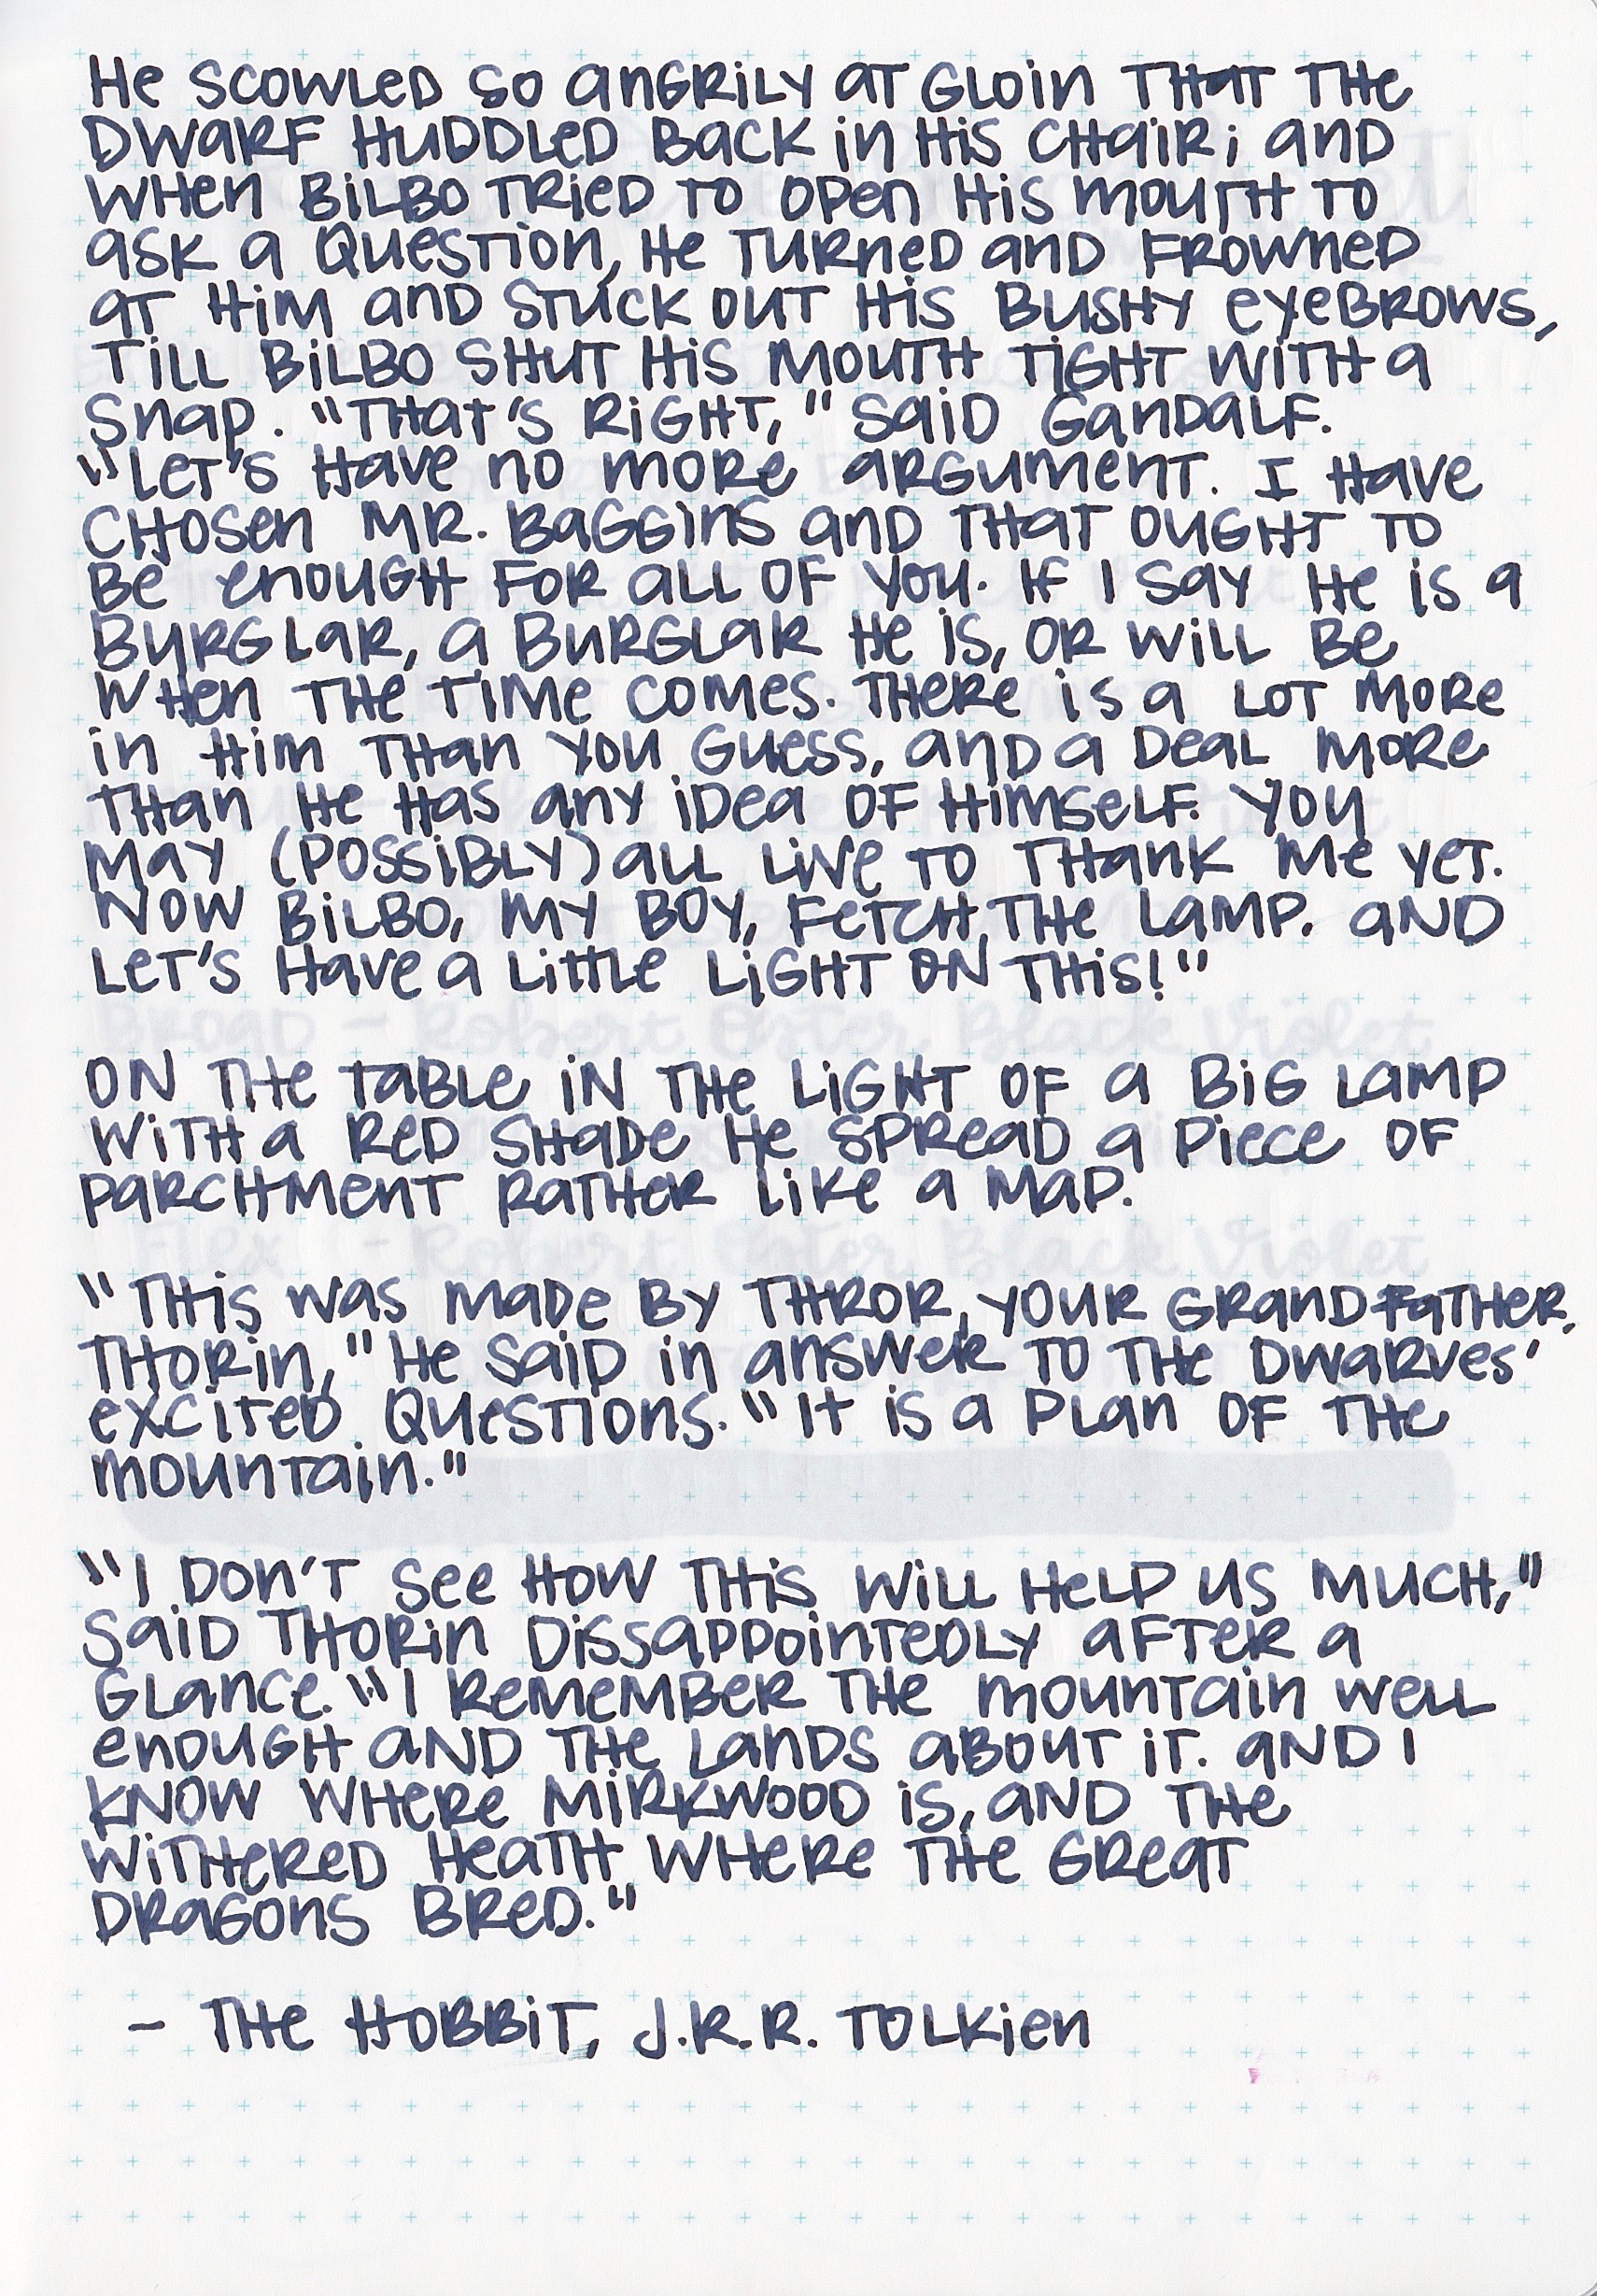 He scowled so angrily at Gloin that the
dwarf huddled back in his chair; and
when Bilbo tried to open his mouth to
ask a question, he turned and frowned
at him and stuck out his bushy eyebrows,
till Bilbo shut his mouth tight with a
snap. "That's right," said Gandalf.
"Let's have no more argument. I have
chosen Mr. Baggins and that ought to
be enough for all of you. If I say he is a
burglar, a burglar he is, or will be
when the time comes. There is a lot more
in him than you guess, and a deal more
than he has any idea of himself. You
may (possibly) all live to thank me yet.
Now Bilbo, my boy, fetch the lamp. and
let's have a little light on this!"
On the table in the light of a big lamp
with a red shade he spread a piece of
parchment rather like a map.
"This was made by Thror, your grandfather,
Thorin," he said in answer to the dwarves'
excited questions. "It is a plan of the
mountain."
"I don't see how this will help us much,"
said Thorin dissappointedly after a
glance. "I remember the mountain well
enough and the lands about it. and I
know where Mirkwood is, and the
Withered Heath where the great
dragons bred."
- The Hobbit, J.R.R. Tolkien